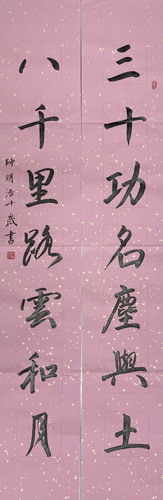 三十功名塵與土
八千里路雲和月
陳明浩十歲書